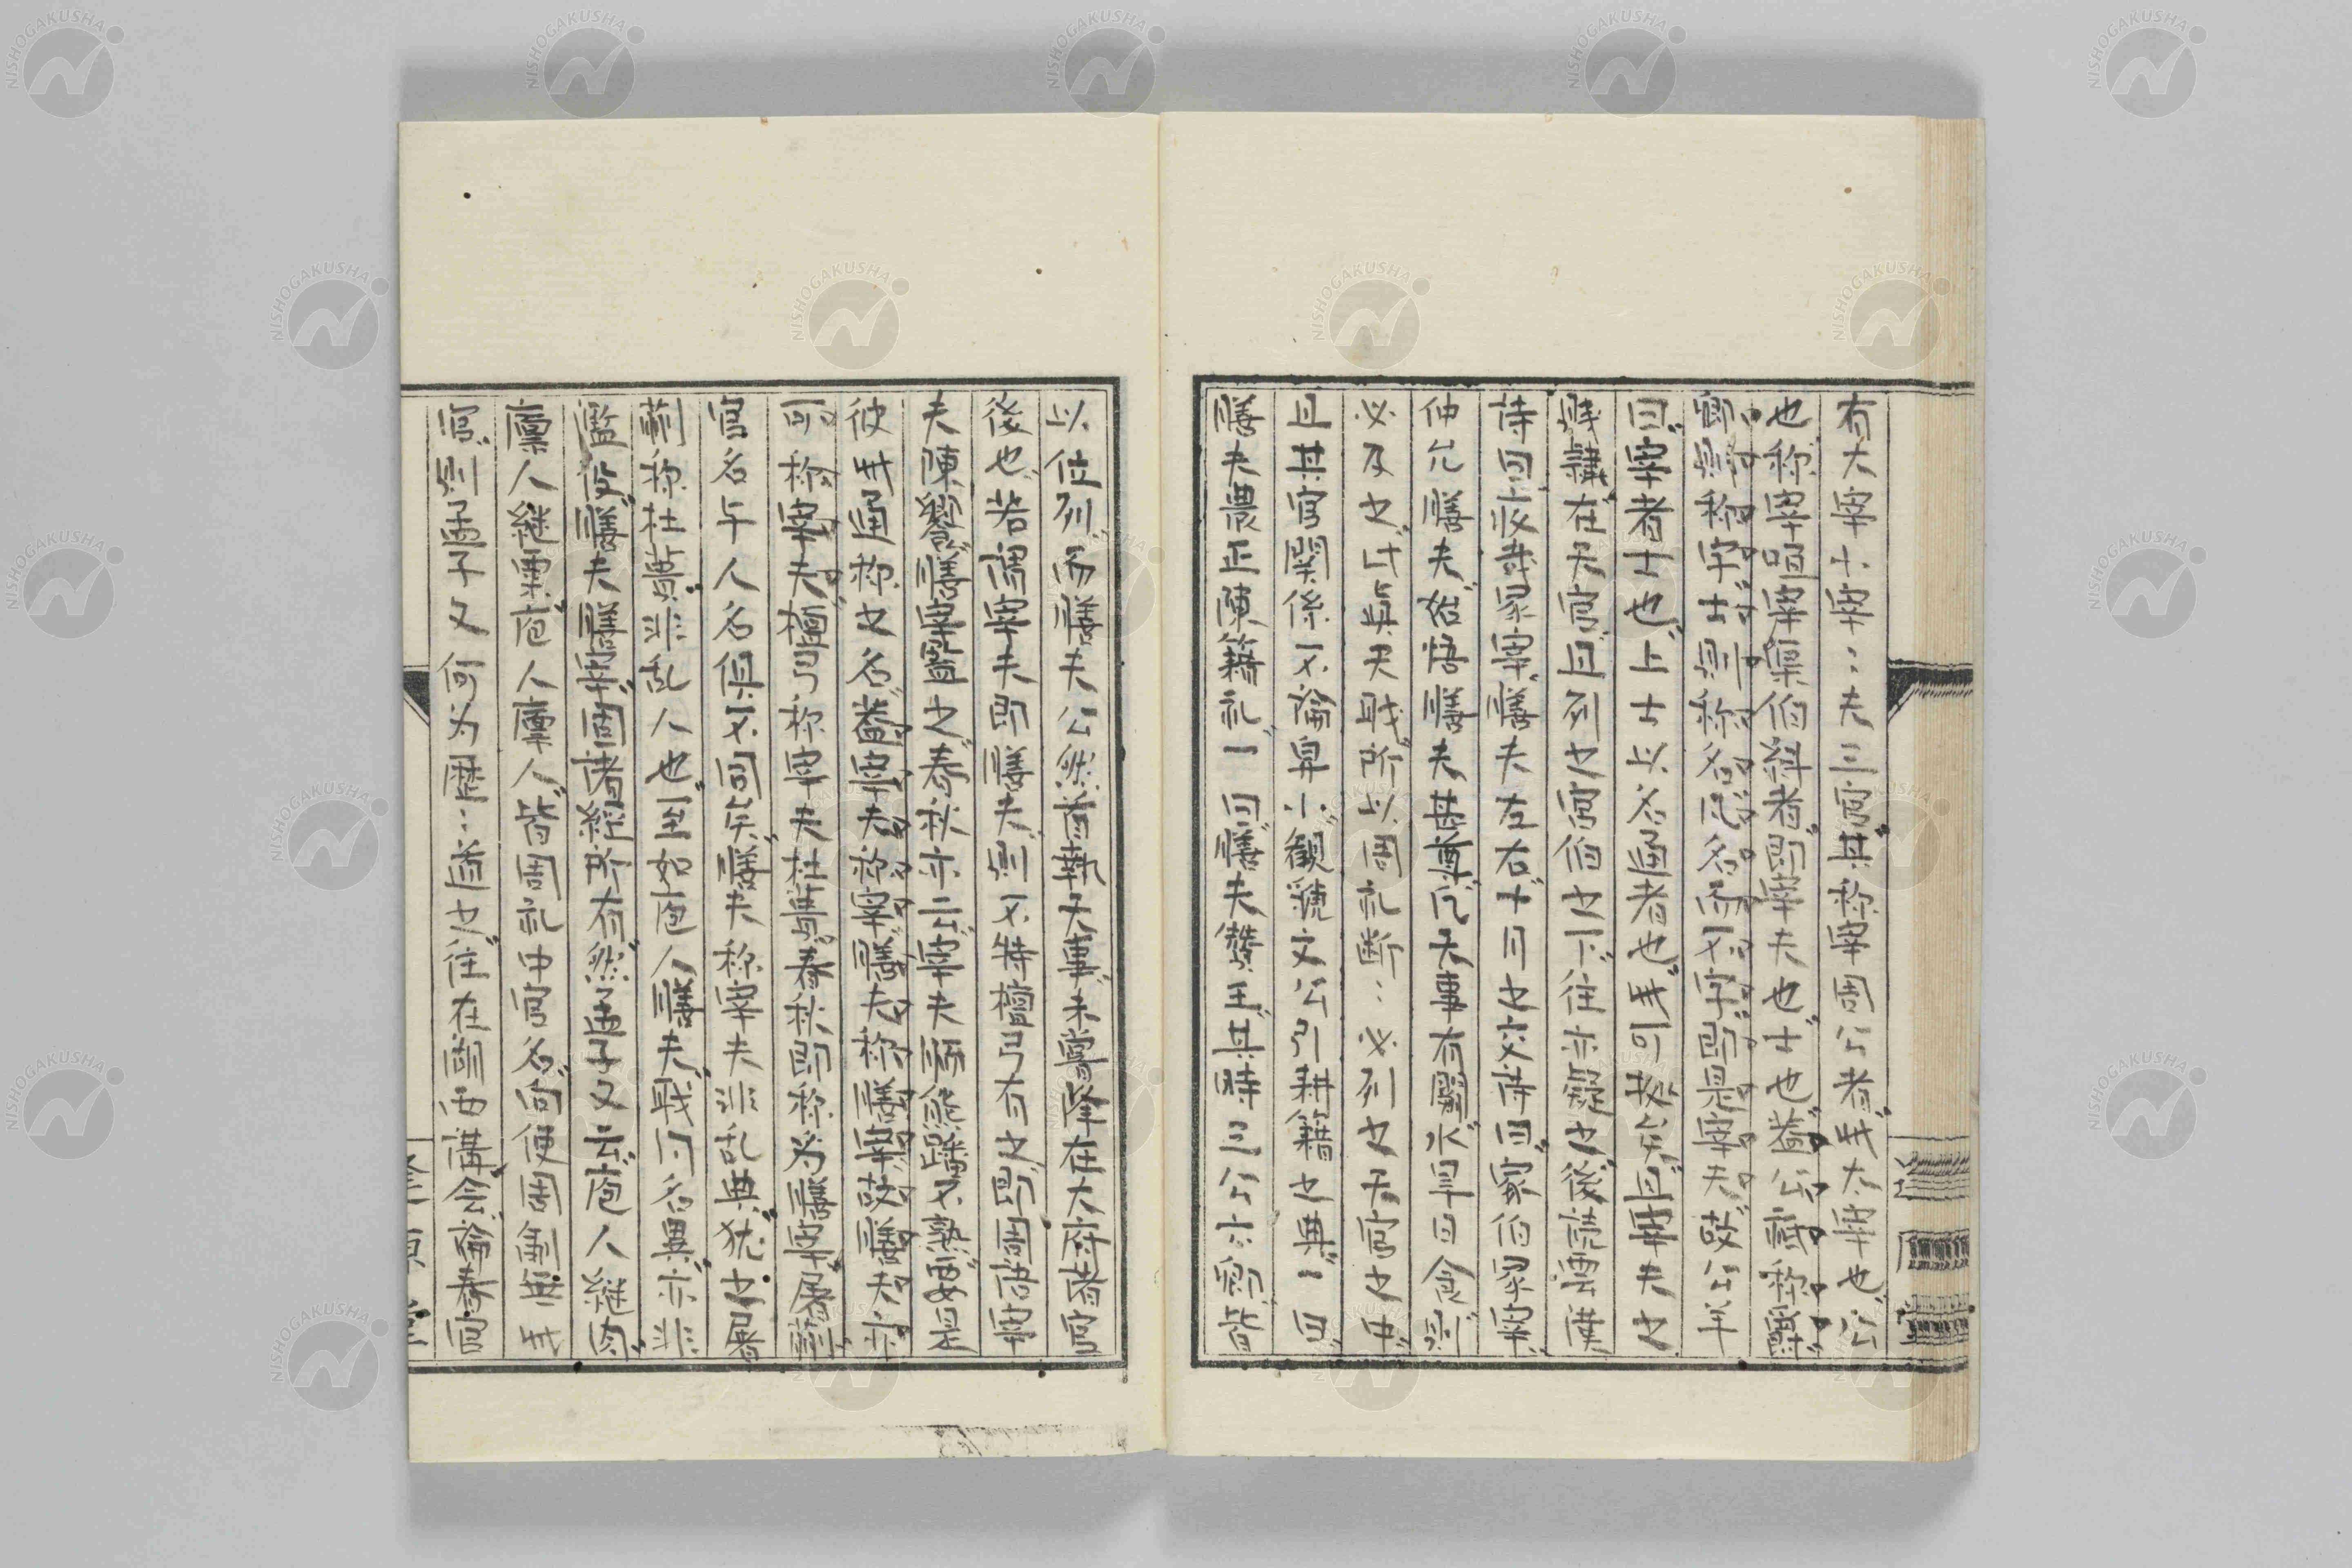 有大宰小宰〻夫三官其称宰周公者此太宰也公
也称宰咺宰渠伯糾者即宰夫也士也蓋公卿称爵
卿則称字士則称名凡名而不字即是宰夫故公羊
曰宰者士也上士以名通者也此可据矣且宰夫之
賤隷在天官且列之宮伯之下往亦疑之後読雲漢
詩曰疚哉冡宰膳夫左右十月之交詩曰家伯冡宰
仲允膳夫始悟膳夫甚尊凡大事有關水旱日食則
必及之此與天戝所以周礼断〻必列之天官之中
且其官関係不論卑小観虢文公引耕籍之典一曰
膳夫農正陳籍礼一曰膳夫贊王其時三公六卿皆
以位列而膳夫公然首執大事未嘗降在大府諸官
後也若謂宰夫即膳夫則不特檀弓有之即周語宰
夫陳饗膳宰監之春秋亦云宰夫胹熊蹯不熟要是
彼此通称之名蓋宰夫称宰膳夫称膳宰故膳夫亦
可称宰夫檀弓称宰夫杜蕢春秋即称為膳宰屠蒯
官名与人名俱不同矣膳夫称宰夫非乱典猶之屠
蒯称杜蕢非乱人也至如庖人膳夫戝同名異亦非
濫役膳夫膳宰固諸経所有然孟子又云庖人継肉
廩人継粟庖人廩人皆周礼中官名向使周制無此
官則孟子又何为歴〻道之往在湖西講会論春官